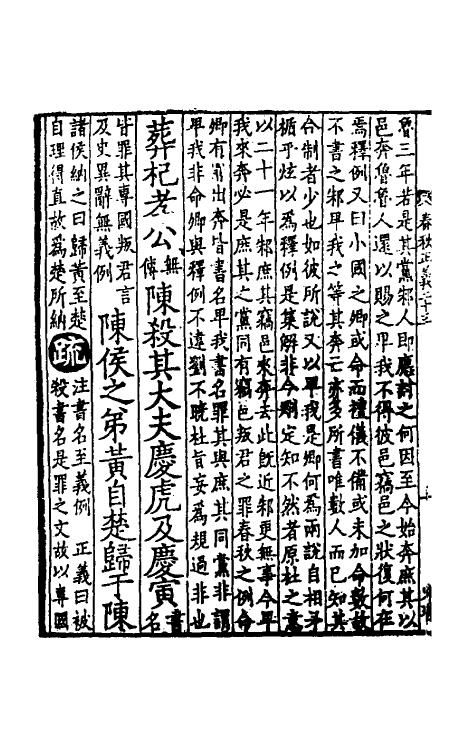 春秋正義二十三
魯三年若是其黨邾人即應討之何因至今始奔庶其以
邑奔魯魯人還以賜之畀我不得彼邑竊邑之狀復何在
焉釋例又曰小國之卿或命而禮儀不備或未加命數故
不書之邾畀我之等其奔亡亦多所書唯數人而已知其
合制者少也如彼所說又以畀我是卿何爲兩說自相矛
楯乎炫以爲釋例是集解非今刪定知不然者原杜之意
以二十一年邾庶其竊邑來奔去此旣近邾更無事今畀
我來奔必是庶其之黨同有竊邑叛君之罪春秋之例命
卿有罪出奔皆書名畀我書名罪其與庶其同黨非謂
畀我非命卿與釋例不違劉不曉杜旨妄爲規過非也
葬杞孝公無傳陳殺其大夫慶虎及慶寅書名
皆罪其專國叛君言及史異辭無義例陳侯之弟黃自楚歸于陳
諸侯納之曰歸黃至楚自理得直故爲楚所納疏注書名至義例 正義曰被殺書名是罪之文故以專國